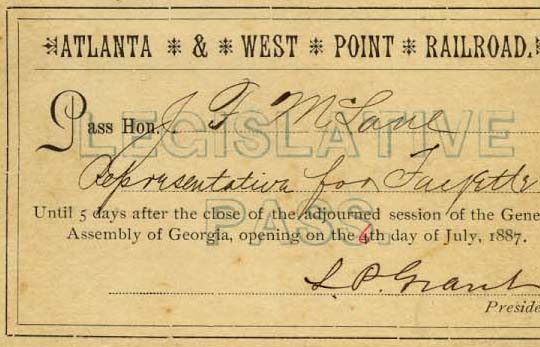 ATLANTA & WEST POINT RAILROAD.
Pass Hon. J. F. McLane
LEGISLATIVE
Representative for Fayette
Until 5 days after the close of the adjourned session of the Gene
PASS.
Assembly of Georgia, opening on the 6th day of July, 1887.
L. P. Grant
Preside